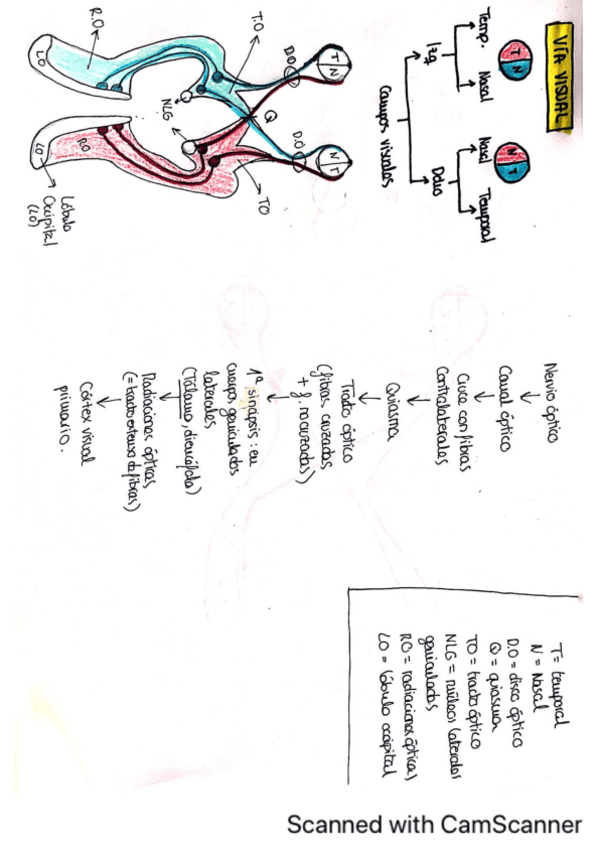 VÍA VISUAL
T N
N T
Temp. Nasal
Nasal Temporal
Izq
Dcho
Campos visuales
T N
N T
D.O
D.O
T.O
Q
TO
NLG
R.O
RO
LO
LO
Lóbulo
Occipital
(LO)
Nervio óptico
Canal óptico
Cruza con fibras
Contralaterales
Quiasma
Tracto óptico
(fibras cruzadas
+ f. no cruzadas)
1ª sinapsis: en
cuerpos geniculados
laterales
(Tálamo, diencéfalo)
Radiaciones ópticas
(= tracto extenso de fibras)
Córtex visual
primario.
T= temporal
N = Nasal
D.O = disco óptico
Q = quiasma
TO = tracto óptico
NLG = núcleos laterales
geniculados
RO = radiaciones ópticas
LO = lóbulo occipital
Scanned with CamScanner